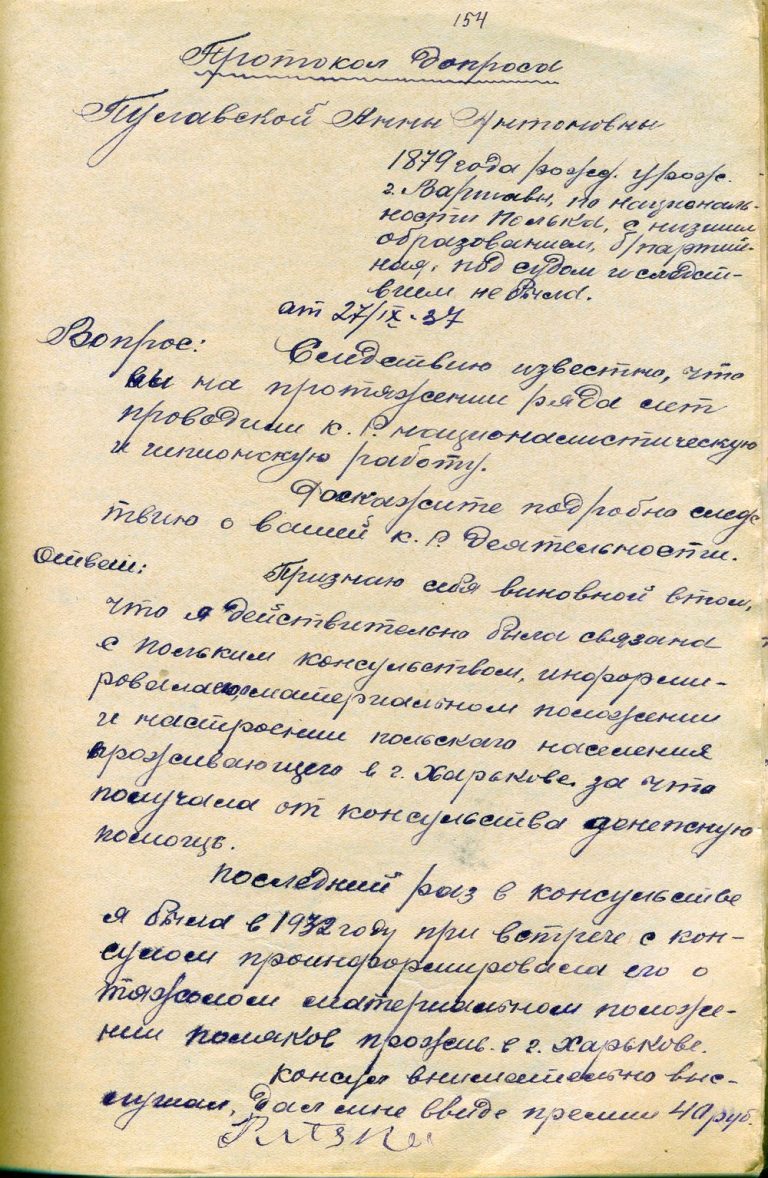 154
Протокол допроса
Пулавской Анны Антоновны
1879 года рожд. урож.
г. Варшавы, по националь-
ности полька, с низшим
образованием, б/партий-
ная, под судом иследст-
вием не была.
от 27/IX-37
Вопрос: Следствию известно, что
вы на протяжении ряда лет
проводили к.р. националистическую
и шпионскую работу.
Раскажите подробно следс
твию о вашей к.р. деятельности.
Ответ: Признаю себя виновной втом,
что я действительно была связана
с польким консульством, информи-
ровала о материальном положении
и настроении польского населения
проживающего в г. Харькове, за что
получала от консульства денежную
помощь.
Последний раз в консульстве
я была в 1932 году при встрече с кон-
сулом проинформировала его о
тяжолом материальном положе-
нии поляков прожив. в г. Харькове.
Консул внимательно выс-
лушал, дал мне ввиде премии 40 руб.